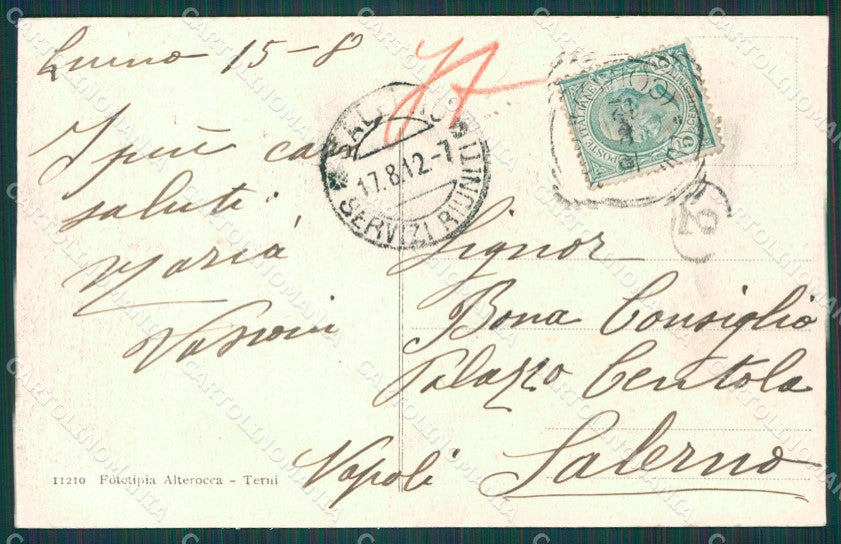 15-8
I più cari
saluti
Maria
Signor
Bona Consiglio
Palazzo Centola
Salerno
Napoli
SALERNO
17.8.12.-7
SERVIZI RIUNITI
POSTE ITALIANE
CENT 5
2
11210 Fototipia Alterocca - Terni
CARTOLINOMANIA